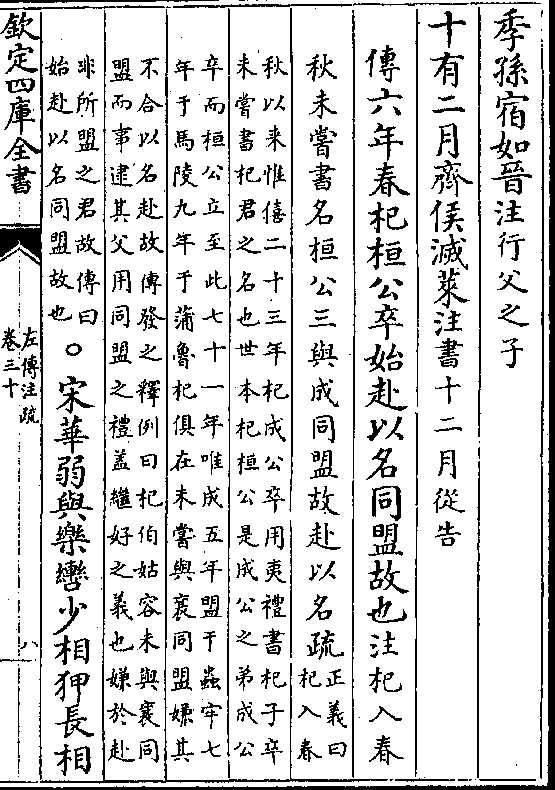 季孫宿如晉注行父之子
十有二月齊侯滅萊注書十二月從告
傳六年春杞桓公卒始赴以名同盟故也注杞入春
秋未嘗書名桓公三與成同盟故赴以名疏正義曰
杞入春
秋以來惟僖二十三年杞成公卒用夷禮書杞子卒
未嘗書杞君之名也世本杞桓公是成公之弟成公
卒而桓公立至此七十一年唯成五年盟于蟲牢七
年于馬陵九年于蒲魯杞俱在未嘗與襄同盟嫌其
不合以名赴故傳發之釋例曰杞伯姑容未與襄同
盟而事逮其父用同盟之禮盖繼好之義也嫌於赴
非所盟之君故傳曰
始赴以名同盟故也
○宋華弱與樂轡少相狎長相
欽定四庫全書
左傳注疏
卷三十
八